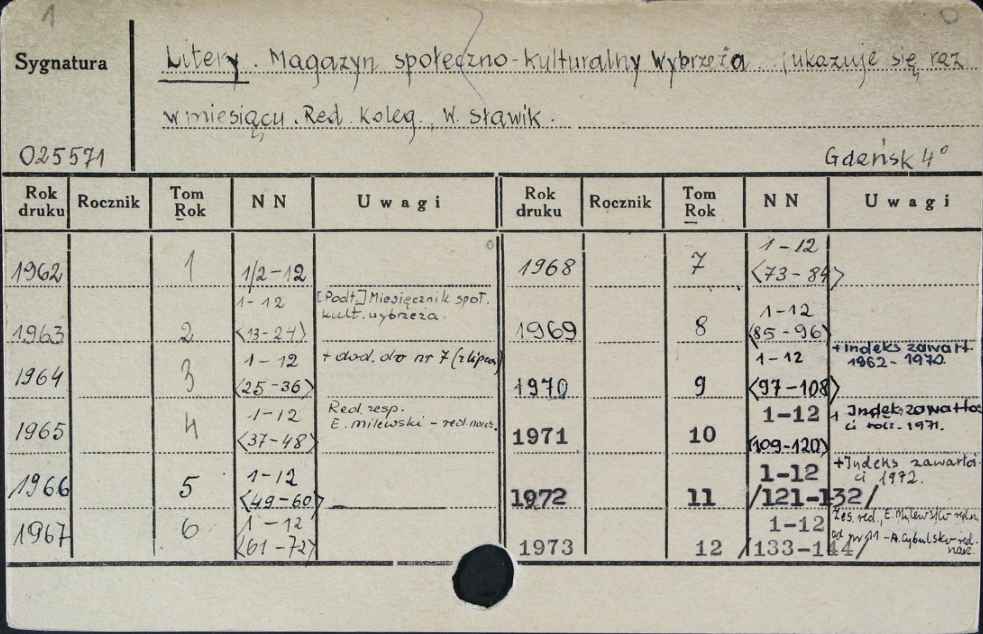 1
Sygnatura
Litery. Magazyn społeczno-kulturalny Wybrzeża. ukazuje się raz
w miesiącu. Red. Koleg., W. Sławik.
025571
Gdańsk 4°
Rok druku Rocznik Tom Rok NN Uwagi Rok druku Rocznik Tom Rok NN Uwagi
1962 1 1/2-12
1963 2 1-12 <13-24> [Podt.] Miesięcznik społ. kult. wybrzeża.
1964 3 1-12 <25-36> + dod. do nr 7 (z lipca)
1965 4 1-12 <37-48> Red. resp. E. Milewski - red. nacz.
1966 5 1-12 <49-60>
1967 6 1-12 <61-72>
1968 7 1-12 <73-84>
1969 8 1-12 <85-96>
1970 9 1-12 <97-108> + Indeks zawart. 1962-1970.
1971 10 1-12 <109-120> + Indeks zawartoś ci 1971.
1972 11 1-12 /121-132/ + Indeks zawartoś ci 1972.
1973 12 1-12 /133-144/ Zes. red., E. Milewski - od nr 11 - A. Cybulski - red. nacz.